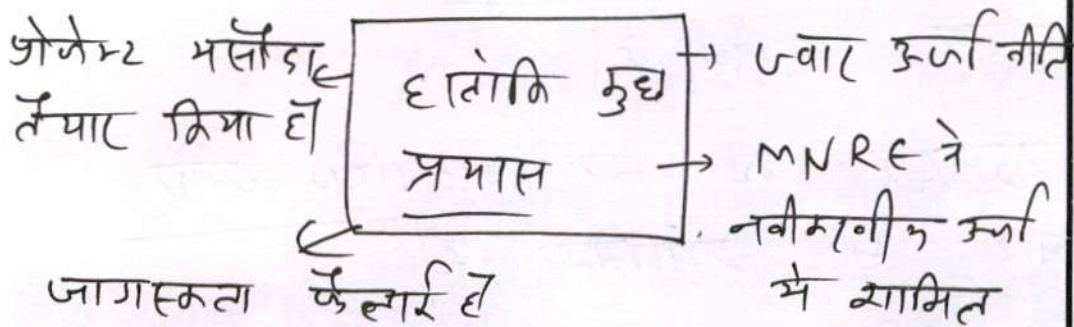 प्रोजेक्ट मसौदा
तैयार किया है
हालांकि कुछ
प्रयास
→ ज्वार ऊर्जा नीति
→ MNRE ने
नवीकरणीय ऊर्जा
में शामिल
जागरूकता फैलाई है